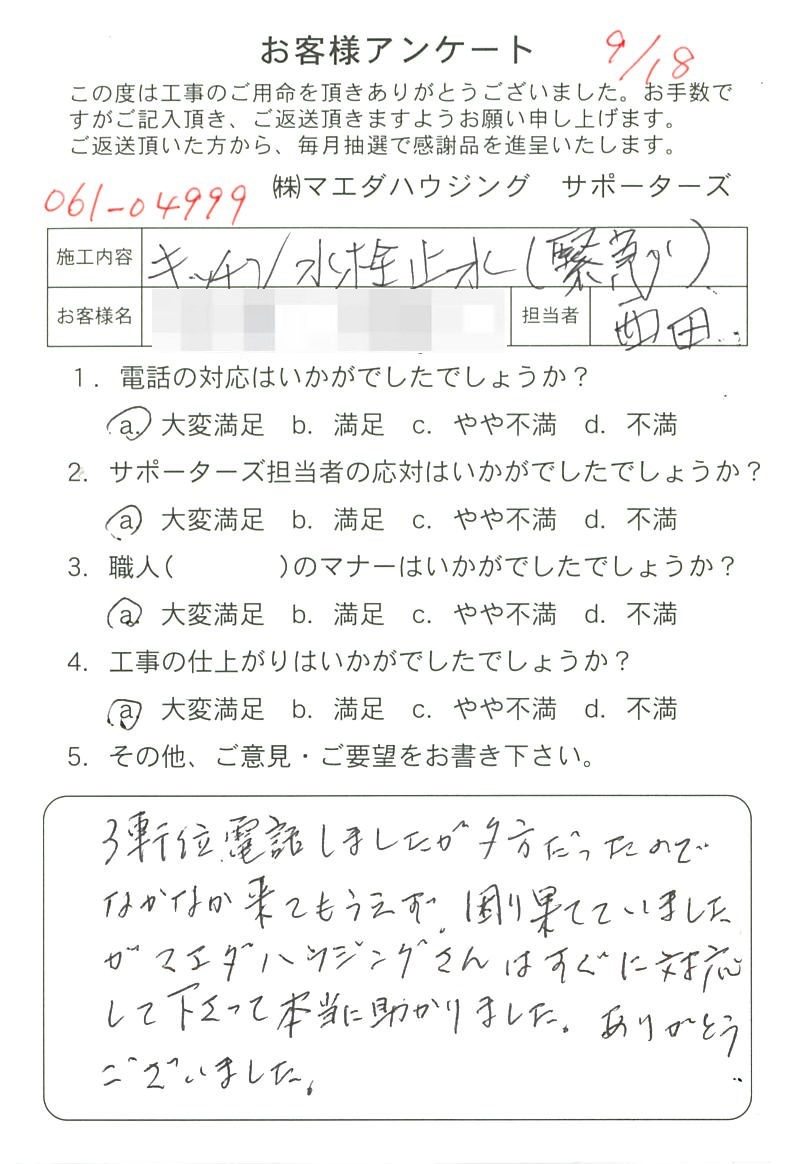 お客様アンケート
9/18
この度は工事のご用命を頂きありがとうございました。お手数で
すがご記入頂き、ご返送頂きますようお願い申し上げます。
ご返送頂いた方から、毎月抽選で感謝品を進呈いたします。
061-04999
㈱マエダハウジング　サポーターズ
施工内容 キッチン/水栓止水(緊急)
お客様名 担当者 西田
1. 電話の対応はいかがでしたでしょうか？
a. 大変満足 b. 満足 c. やや不満 d. 不満
2. サポーターズ担当者の応対はいかがでしたでしょうか？
a 大変満足 b. 満足 c. やや不満 d. 不満
3. 職人(　　　　)のマナーはいかがでしたでしょうか？
a. 大変満足 b. 満足 c. やや不満 d. 不満
4. 工事の仕上がりはいかがでしたでしょうか？
a. 大変満足 b. 満足 c. やや不満 d. 不満
5. その他、ご意見・ご要望をお書き下さい。
3軒位電話しましたが夕方だったので
なかなか来てもらえず、困り果てていました
がマエダハウジングさんはすぐに対応
して下さって本当に助かりました。ありがとう
ございました。